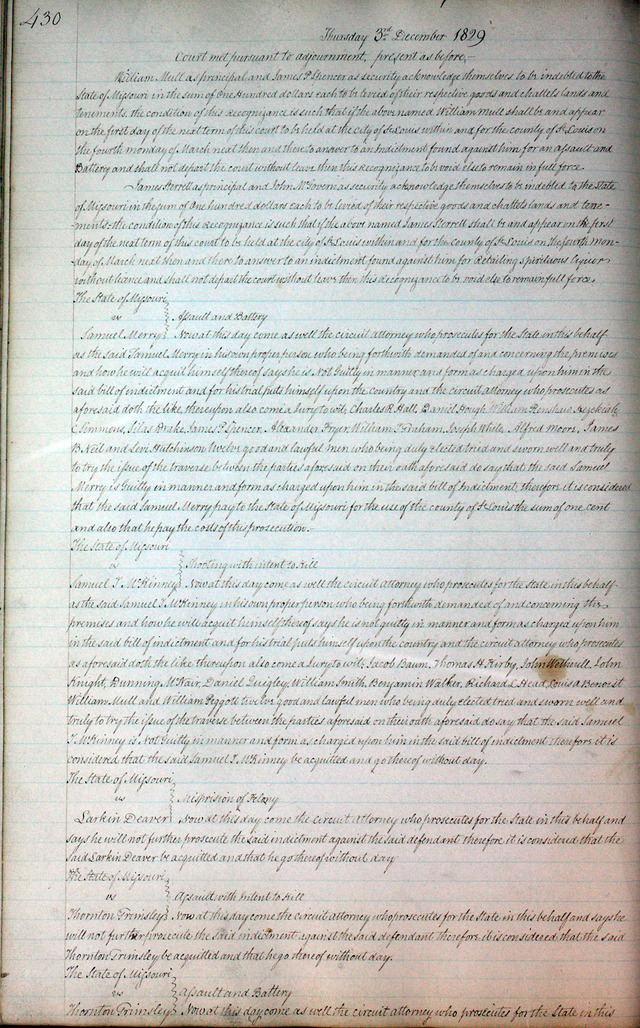 430
Thursday 3rd December 1829
Court met pursuant to adjournment, present as before,
William Mull as principal and James P Spencer as security acknowledge themselves to be indebted to the
State of Missouri in the sum of One Hundred dollars each to be levied of their respective goods and chattels lands and
tenements. the condition of this recognizance is such that if the above named William Mull shall be and appear
on the first day of the next term of this court to be held at the city of St Louis within and for the county of St Louis on
the fourth monday of March next then and there to answer to an Indictment found against him for an Assault and
Battery and shall not depart the court without leave then this Recognizance to be void else to remain in full force.
James Ferrell as principal and John McGovern as security acknowledge themselves to be indebted to the State
of Missouri in the sum of One hundred dollars each to be levied of their respective goods and chattels lands and tene-
-ments. the condition of this recognizance is such that if the above named James Ferrell shall be and appear on the first
day of the next term of this court to be held at the city of St Louis within and for the County of St Louis on the fourth Mon-
-day of March next then and there to answer to an indictment found against him for Retailing spirituous liquor
without licence and shall not depart the court without leave then this recognizance to be void else to remain full force.
The State of Missouri
vs Assault and Battery
Samuel Merry Now at this day come as well the circuit attorney who prosecutes for the State in this behalf
as the said Samuel Merry in his own proper person who being forthwith demanded of and concerning the premises
and how he will acquit himself thereof says he is Not Guilty in manner and form as charged upon him in the
said bill of indictment and for his trial puts himself upon the country and the circuit attorney who prosecutes as
aforesaid doth the like thereupon also come a Jury to wit; Charles R. Hall, Daniel Hough William Renshaw Hezekiah
C Simmens, Silas Drake, James P Spencer, Alexander Fryer, William T Graham, Joseph White, Alfred Moore, James
B. Neil and Levi Hutchinson twelve good and lawful men who being duly elected tried and sworn well and truly
to try the issue of the traverse between the parties aforesaid on their oath aforesaid do say that the said Samuel
Merry is Guilty in manner and form as charged upon him in the said bill of Indictment, therefore it is considered
that the said Samuel Merry pay to the State of Missouri for the use of the county of St Louis the sum of one cent
and also that he pay the costs of this prosecution.
The State of Missouri
vs Shooting with intent to Kill
Samuel T. McKinney Now at this day come as well the circuit attorney who prosecutes for the State in this behalf
as the said Samuel T. McKinney in his own proper person who being forthwith demanded of and concerning the
premises and how he will acquit himself thereof says he is not guilty in manner and form as charged upon him
in the said bill of indictment and for his trial puts himself upon the country and the circuit attorney who prosecutes
as aforesaid doth the like thereupon also come a Jury to wit; Jacob Baum, Thomas H. Kirby, John Wethwell, John
Knight, Running, McNair, Daniel Quigley, William Smith, Benjamin Walker, Richard L Head, Louis A Benoist
William Mull and William Piggott twelve good and lawful men who being duly elected tried and sworn well and
truly to try the issue of the traverse between the parties aforesaid on their oath aforesaid do say that the said Samuel
T. McKinney is Not Guilty in manner and form as charged upon him in the said bill of Indictment therefore it is
considered that the said Samuel T. McKinney be acquitted and go thereof without day.
The State of Missouri
vs Misprision of Felony
Larkin Deaver Now at this day come the circuit Attorney who prosecutes for the State in this behalf and
says he will not further prosecute the said indictment against the said defendant therefore it is considered that the
said Larkin Deaver be acquitted and that he go thereof without day
The State of Missouri
vs Assault with Intent to Kill
Thornton Grimsley Now at this day come the circuit attorney who prosecutes for the State in this behalf and says he
will not further prosecute the said indictment against the said defendant therefore it is considered that the said
Thornton Grimsley be acquitted and that he go thereof without day.
The State of Missouri
vs Assault and Battery
Thornton Grimsley Now at this day come as well the circuit attorney who prosecutes for the State in this